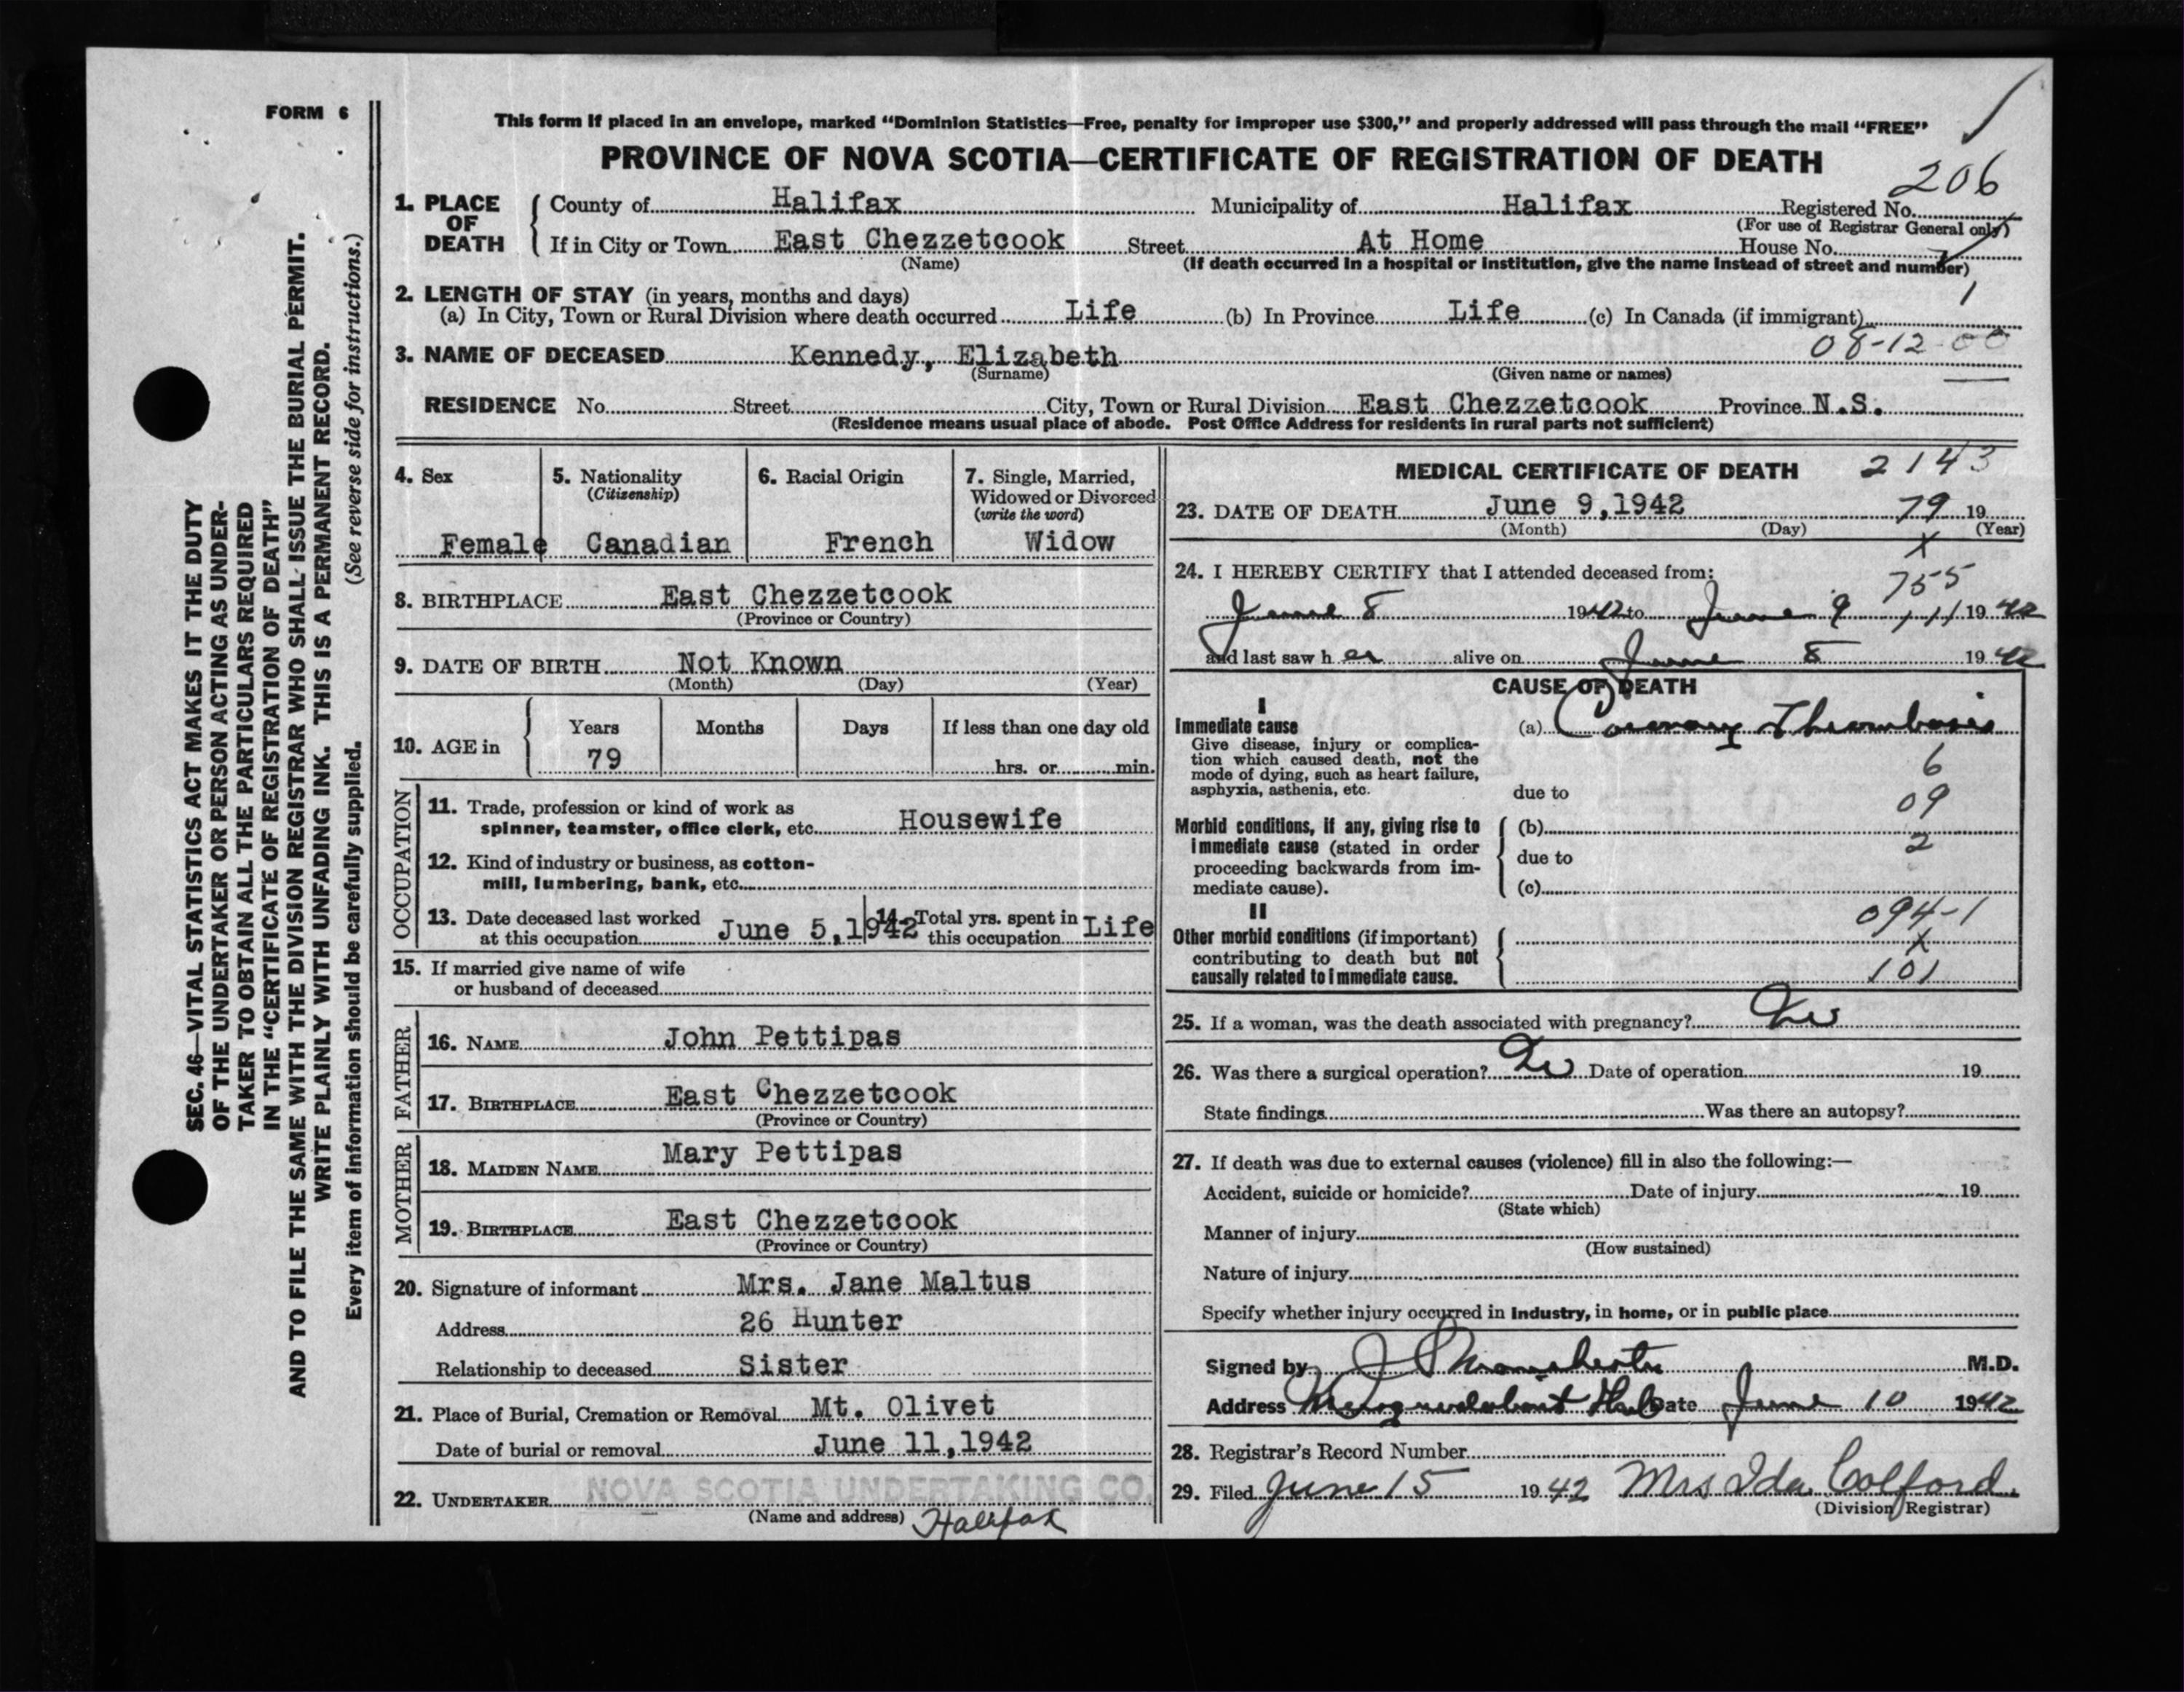 FORM 6
This form if placed in an envelope, marked “Dominion Statistics—Free, penalty for improper use $300,” and properly addressed will pass through the mail “FREE”
PROVINCE OF NOVA SCOTIA—CERTIFICATE OF REGISTRATION OF DEATH
206
1. PLACE OF DEATH
County of Halifax Municipality of Halifax Registered No.
(For use of Registrar General only)
If in City or Town East Chezzetcook Street At Home House No.
(Name) (If death occurred in a hospital or institution, give the name instead of street and number)
2. LENGTH OF STAY (in years, months and days) 1
(a) In City, Town or Rural Division where death occurred Life (b) In Province Life (c) In Canada (if immigrant)
08-12-00
3. NAME OF DECEASED Kennedy, Elizabeth
(Surname) (Given name or names)
RESIDENCE No. Street City, Town or Rural Division East Chezzetcook Province N.S.
(Residence means usual place of abode. Post Office Address for residents in rural parts not sufficient)
4. Sex
Female
5. Nationality
(Citizenship)
Canadian
6. Racial Origin
French
7. Single, Married,
Widowed or Divorced
(write the word)
Widow
8. BIRTHPLACE East Chezzetcook
(Province or Country)
9. DATE OF BIRTH Not Known
(Month) (Day) (Year)
10. AGE in
Years Months Days If less than one day old
79 hrs. or min.
OCCUPATION
11. Trade, profession or kind of work as
spinner, teamster, office clerk, etc. Housewife
12. Kind of industry or business, as cotton-
mill, lumbering, bank, etc.
13. Date deceased last worked
at this occupation June 5,1942
14. Total yrs. spent in
this occupation Life
15. If married give name of wife
or husband of deceased
FATHER
16. NAME John Pettipas
17. BIRTHPLACE East Chezzetcook
(Province or Country)
MOTHER
18. MAIDEN NAME Mary Pettipas
19. BIRTHPLACE East Chezzetcook
(Province or Country)
20. Signature of informant Mrs. Jane Maltus
Address 26 Hunter
Relationship to deceased Sister
21. Place of Burial, Cremation or Removal Mt. Olivet
Date of burial or removal June 11,1942
22. UNDERTAKER NOVA SCOTIA UNDERTAKING CO.
(Name and address) Halifax
MEDICAL CERTIFICATE OF DEATH 2143
23. DATE OF DEATH June 9,1942 79 19
(Month) (Day) (Year)
X
24. I HEREBY CERTIFY that I attended deceased from:
755
June 8 1942 to June 9 111 19 42
and last saw h er alive on June 8 19 42
CAUSE OF DEATH
I
Immediate cause (a) Coronary Thrombosis
Give disease, injury or complica-
tion which caused death, not the
mode of dying, such as heart failure,
asphyxia, asthenia, etc.
6
due to
09
Morbid conditions, if any, giving rise to (b)
immediate cause (stated in order
2
proceeding backwards from im- due to
mediate cause). (c)
II
094-1
Other morbid conditions (if important)
X
contributing to death but not
causally related to immediate cause.
101
25. If a woman, was the death associated with pregnancy? No
26. Was there a surgical operation? No Date of operation 19
State findings Was there an autopsy?
27. If death was due to external causes (violence) fill in also the following:—
Accident, suicide or homicide? Date of injury 19
(State which)
Manner of injury
(How sustained)
Nature of injury
Specify whether injury occurred in industry, in home, or in public place
Signed by M.D.
Address Date June 10 1942
28. Registrar's Record Number
29. Filed June 15 1942 Mrs Ida Colford
(Division Registrar)
SEC. 46—VITAL STATISTICS ACT MAKES IT THE DUTY
OF THE UNDERTAKER OR PERSON ACTING AS UNDER-
TAKER TO OBTAIN ALL THE PARTICULARS REQUIRED
IN THE “CERTIFICATE OF REGISTRATION OF DEATH”
AND TO FILE THE SAME WITH THE DIVISION REGISTRAR WHO SHALL ISSUE THE BURIAL PERMIT.
WRITE PLAINLY WITH UNFADING INK. THIS IS A PERMANENT RECORD.
Every item of information should be carefully supplied. (See reverse side for instructions.)